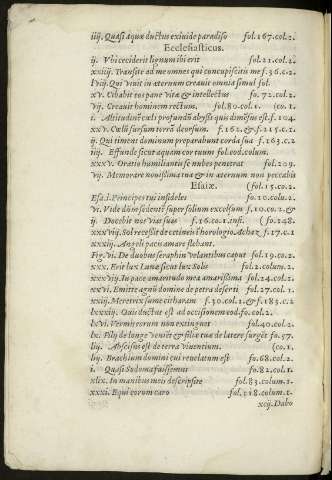 iiij. Quasi aquæ ductus exiuide paradiso fol.167.col.2.
Ecclesiasticus.
ij. Vbi ceciderit lignum ibi erit fol.21.col.2.
xxiiij. Transite ad me omnes qui concupiscitis me f.36.c.2.
xviij. Qui viuit in æternum creauit omnia simul fol.
xv. Cibabit eos pane vitæ & intellectus fo.72.col.2.
vij. Creauit hominem rectum. fol.80.col.1. (co.1.
i. Altitudinē cæli profundū abyssi quis dimēsus est.f.104.
xxv. Cælū sursum terrā deorsum. f.162.& f.215.c.1.
ij. Qui timent dominum preparabunt corda sua f.163.c.2
iiij. Effunde sicut aquam cor tuum fol.eod.colum.
xxxv. Oratio humiliantis se nubes penetrat fol.209.
vij. Memorare nouissima tua & in æternum non peccabis
Esaiæ. (fol.15.co.2.
Esa.i. Principes tui infideles fo.10.colum.2.
vi. Vide dūm sedentē super solium excelsum f.10.co.2.&
ij. Docebit nos vias suas f.16.co.1.infi. (fo.248.
xxxviij. Sol recessit decem lineis horologio Achaz f.17.c.1
xxxiij. Angeli pacis amare flebant.
Fig.vi. De duobus seraphin velantibus caput fol.19.co.2.
xxx. Erit lux Lunæ sicut lux Solis fol.2.colum.1.
xxxviij. In pace amaritudo mea amarissima fol.24.col.2.
xvi. Emitte agnū domine de petra deserti fol.27.col.1.
xxiij. Meretrix sume citharam f.30.col.2.& f.183.c.2
lxxxiij. Ouis ductus est ad occisionem eod.fo.col.2.
lxvi. Vermis eorum non extinguet fol.40.col.2.
lx. Filij de longe veniēt & filiæ tuæ de latere surgēt fo.57.
liij. Abscissus est de terra viuentium. (co.1.
liij. Brachium domini cui reuelatum est fo.68.col.2.
i. Quasi Sodoma fuissemus fo.82.col.1.
xlix. In manibus meis descripsi te fol.83.colum.1.
xxxi. Equi eorum caro fol.118.colum.1.
xcij. Dabo